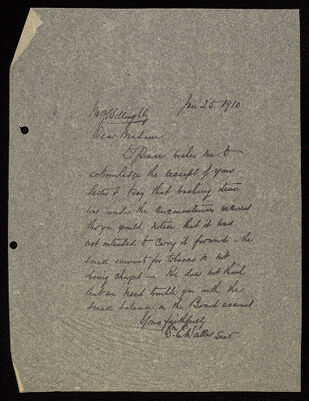 Jan 25 1910
Dear Madam
Please wishes me to
acknowledge the receipt of your
letter & say that washing item
was under the circumstances
you would notice that it was
not intended to carry it forward – the
small amounts for tobacco is not
being charged – He does not think
that we need trouble you with the
small balance on the Board account
Yours faithfully